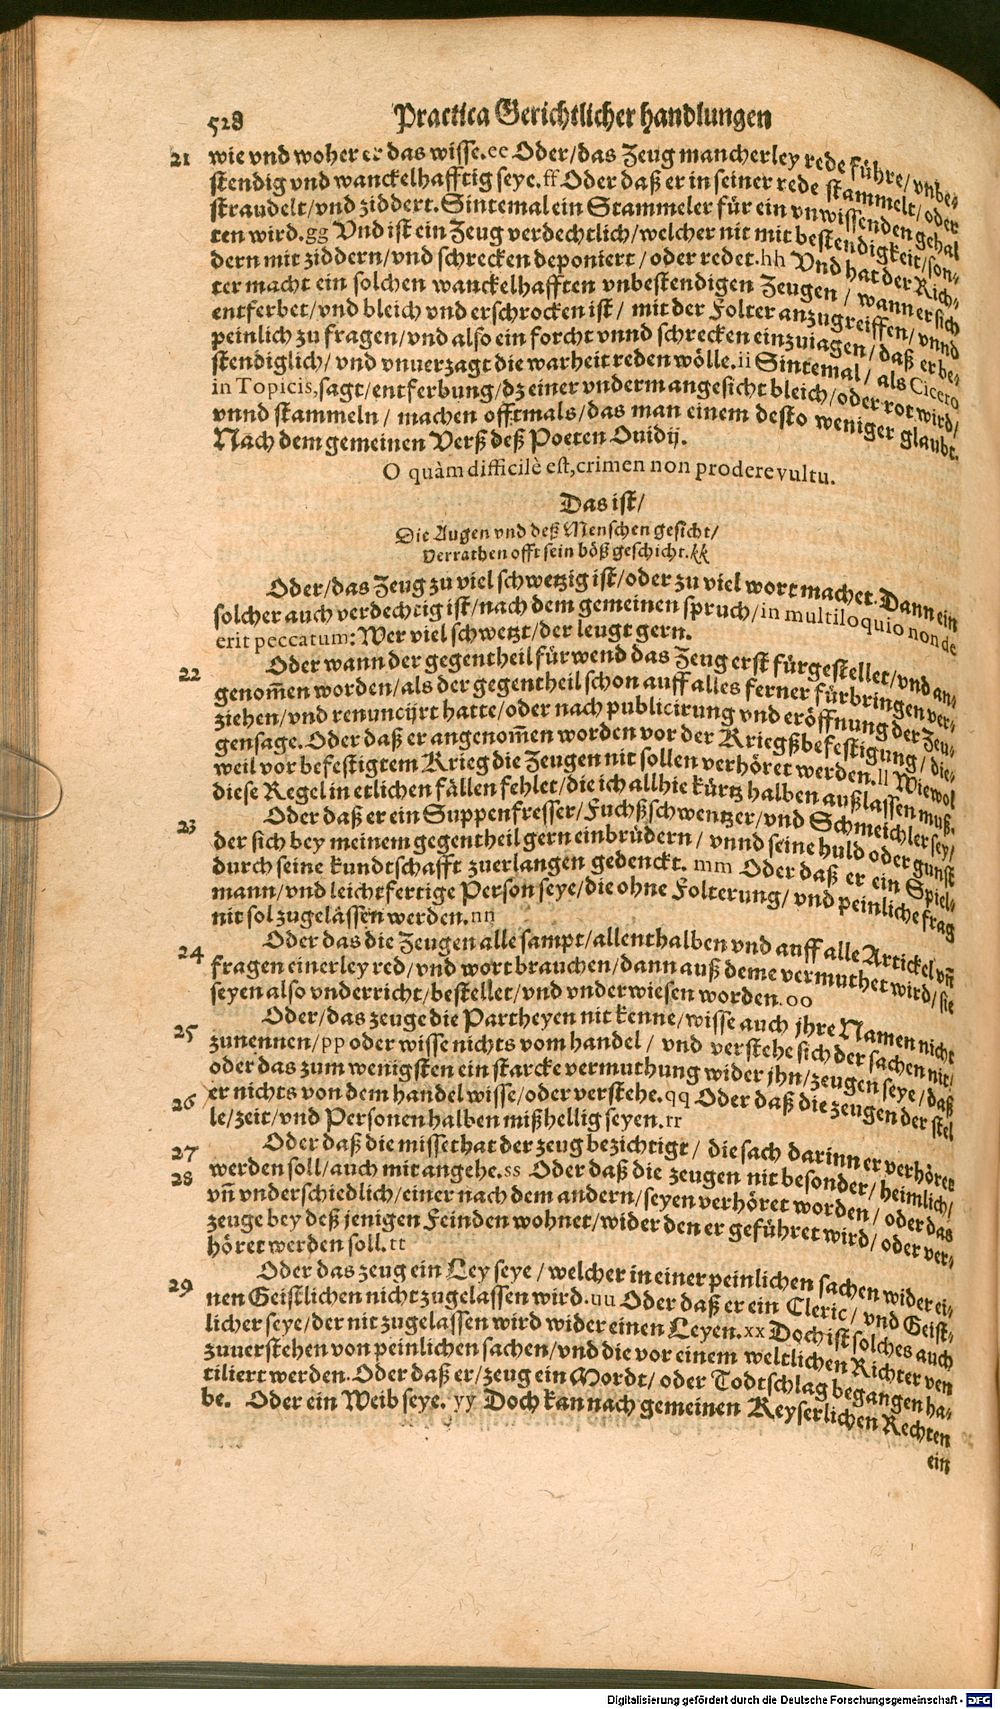 528 Practica Gerichtlicher handlungen
21 wie vnd woher er das wisse.ee Oder/das Zeug mancherley rede führe/vnbe-
stendig vnd wanckelhafftig seye.ff Oder daß er in seiner rede stammelt/oder
straudelt/vnd ziddert. Sintemal ein Stammeler für ein vnwissenden gehal
ten wird.gg Vnd ist ein Zeug verdechtlich/welcher nit mit bestendigkeit/son-
dern mit ziddern/vnd schrecken deponiert/oder redet.hh Vnd hat der Rich-
ter macht ein solchen wanckelhafften vnbestendigen Zeugen/wann er sich
entferbet/vnd bleich vnd erschrocken ist/mit der Folter anzugreiffen/vnnd
peinlich zu fragen/vnd also ein forcht vnnd schrecken einzuiagen/daß er be-
stendiglich/vnd vnuerzagt die warheit reden wölle.ii Sintemal/als Cicero
in Topicis, sagt/entferbung/dz einer vnderm angesicht bleich/oder rot wird/
vnnd stammeln/machen offtmals/das man einem desto weniger glaubt.
Nach dem gemeinen Verß deß Poeten Ouidij.
O quàm difficilè est, crimen non prodere vultu.
Das ist/
Die Augen vnd deß Menschen gesicht/
Verrathen offt sein böß geschicht.kk
Oder/das Zeug zu viel schwetzig ist/oder zu viel wort machet. Dann ein
solcher auch verdechtig ist/nach dem gemeinen spruch/in multiloquio non de
erit peccatum: Wer viel schwetzt/der leugt gern.
22 Oder wann der gegentheil fürwend das Zeug erst fürgestellet/vnd an-
genom̃en worden/als der gegentheil schon auff alles ferner fürbringen ver-
ziehen/vnd renuncijrt hatte/oder nach publicirung vnd eröffnung der Zeu-
gensage. Oder daß er angenom̃en worden vor der Kriegßbefestigung/die-
weil vor befestigtem Krieg die Zeugen nit sollen verhöret werden.ll Wiewol
diese Regel in etlichen fällen fehlet/die ich allhie kürtz halben außlassen muß.
23 Oder daß er ein Suppenfresser/Fuchßschwentzer/vnd Schmeichler sey/
der sich bey meinem gegentheil gern einbrüdern/vnnd seine huld oder gunst
durch seine kundtschafft zuerlangen gedenckt. mm Oder daß er ein Spiel-
mann/vnd leichtfertige Person seye/die ohne Folterung/vnd peinliche frag
nit sol zugelassen werden.nn
24 Oder das die Zeugen alle sampt/allenthalben vnd auff alle Artickel vñ
fragen einerley red/vnd wort brauchen/dann auß deme vermuthet wird/sie
seyen also vnderricht/bestellet/vnd vnderwiesen worden.oo
25 Oder/das zeuge die Partheyen nit kenne/wisse auch jhre Namen nicht
zunennen/pp oder wisse nichts vom handel/vnd verstehe sich der sachen nit/
oder das zum wenigsten ein starcke vermuthung wider jhn/zeugen seye/daß
26 er nichts von dem handel wisse/oder verstehe.qq Oder daß die zeugen der stel
le/zeit/vnd Personen halben mißhellig seyen.rr
27 Oder daß die missethat der zeug bezichtigt/die sach darinn er verhöret
28 werden soll/auch mit angehe.ss Oder daß die zeugen nit besonder/heimlich/
vñ vnderschiedlich/einer nach dem andern/seyen verhöret worden/oder das
zeuge bey deß jenigen Feinden wohnet/wider den er geführet wird/oder ver-
höret werden soll.tt
29 Oder das zeug ein Ley seye/welcher in einer peinlichen sachen wider ei-
nen Geistlichen nicht zugelassen wird.uu Oder daß er ein Cleric/vnd Geist-
licher seye/der nit zugelassen wird wider einen Leyen.xx Doch ist solches auch
zuuerstehen von peinlichen sachen/vnd die vor einem weltlichen Richter ven
tiliert werden. Oder daß er/zeug ein Mordt/oder Todtschlag begangen ha-
be. Oder ein Weib seye. yy Doch kan nach gemeinen Keyserlichen Rechten
ein
Digitalisierung gefördert durch die Deutsche Forschungsgemeinschaft - DFG